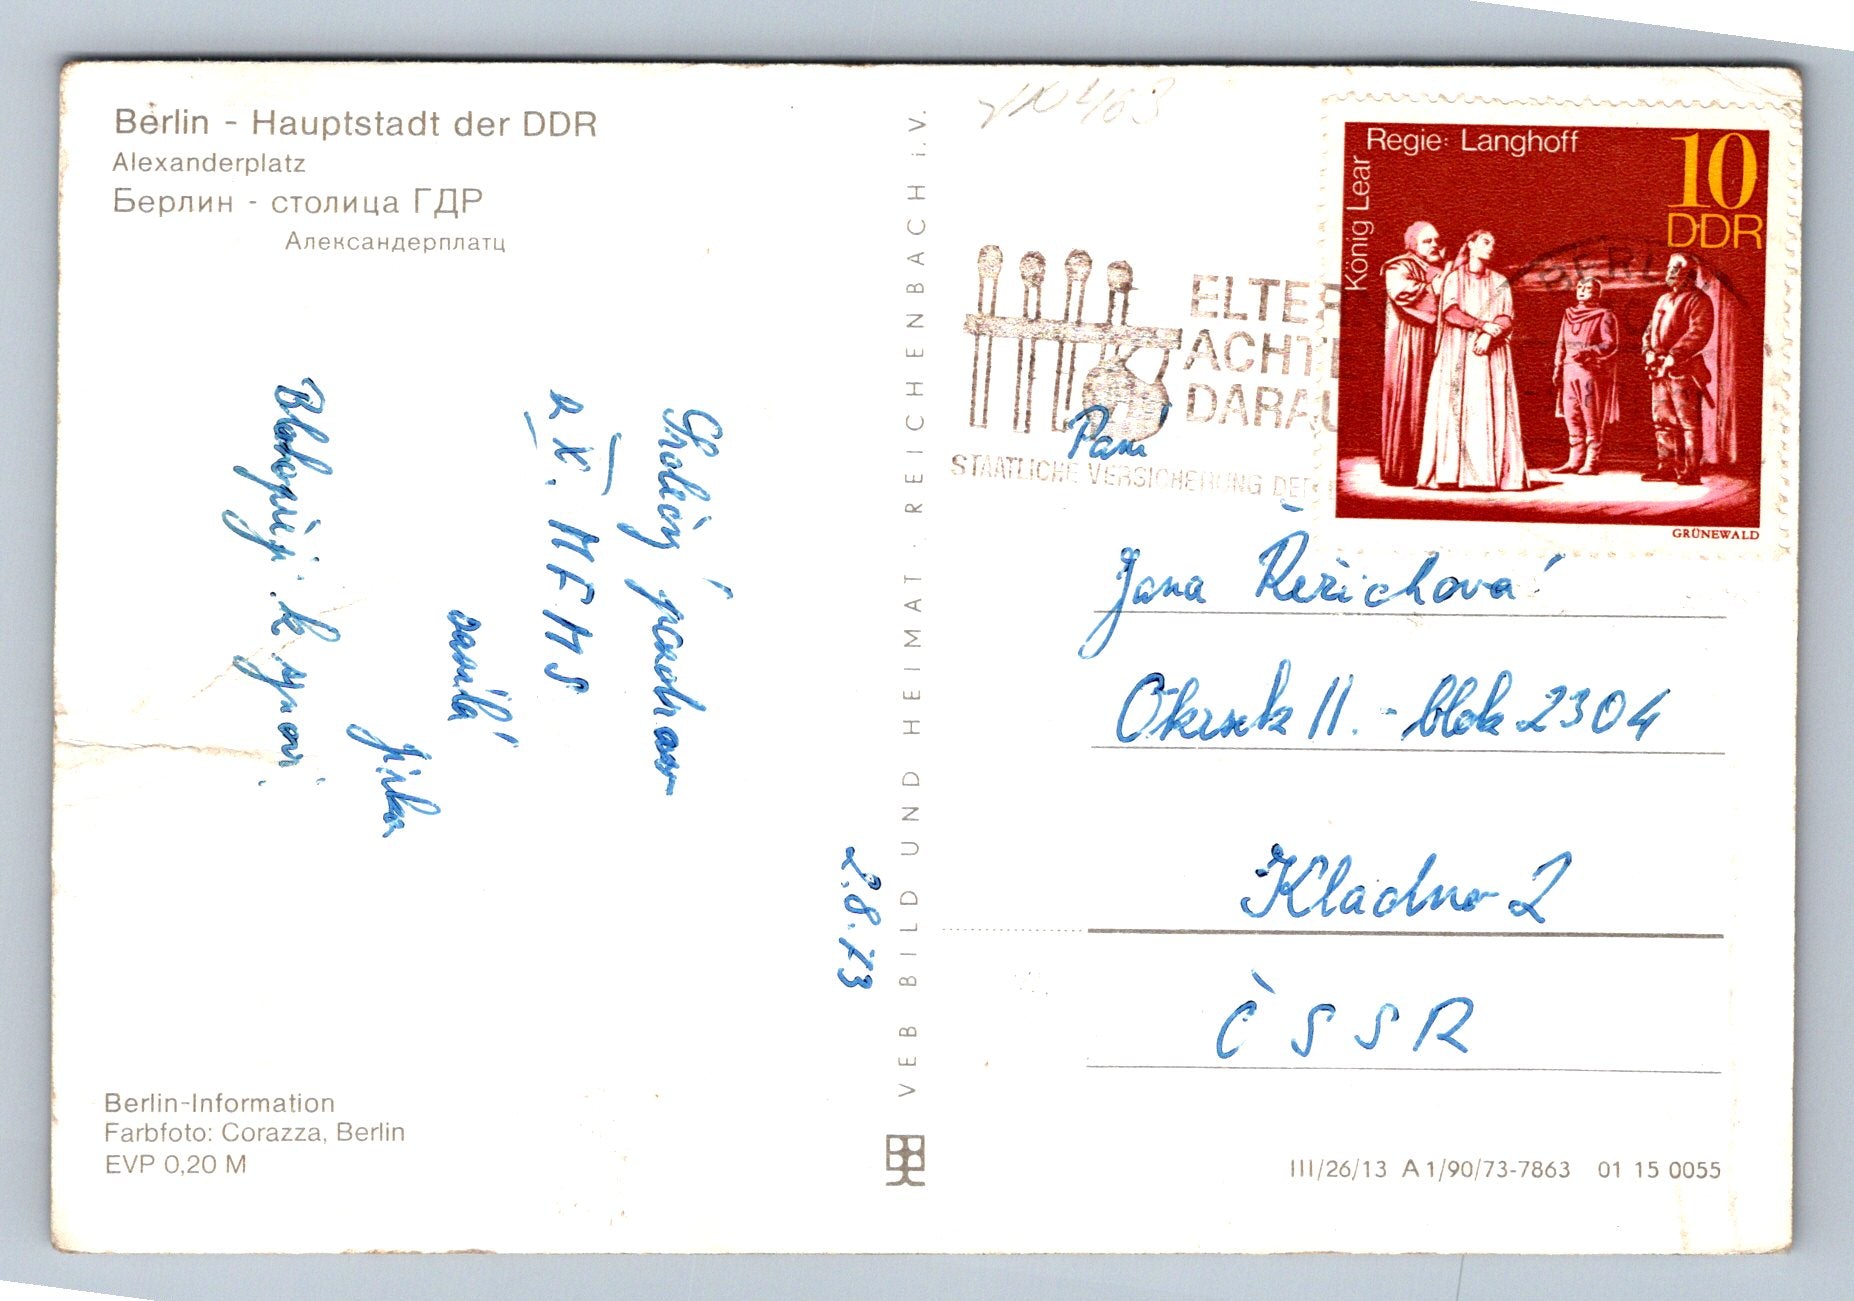 Berlin - Hauptstadt der DDR
Alexanderplatz
Берлин - столица ГДР
Александерплатц
Srdečný pozdrav
z X. MFMS
zasílá
Jirka
Blahopřeji k synovi
2.8.73
Berlin-Information
Farbfoto: Corazza, Berlin
EVP 0,20 M
VEB BILD UND HEIMAT · REICHENBACH i.V.
Regie: Langhoff
König Lear
10
DDR
GRÜNEWALD
BERLIN
ELTER
ACHTE
DARAU
STAATLICHE VERSICHERUNG DER
Paní
Jana Řeřichová
Okrsek II. - blok 2304
Kladno 2
ČSSR
III/26/13 A 1/90/73-7863 01 15 0055